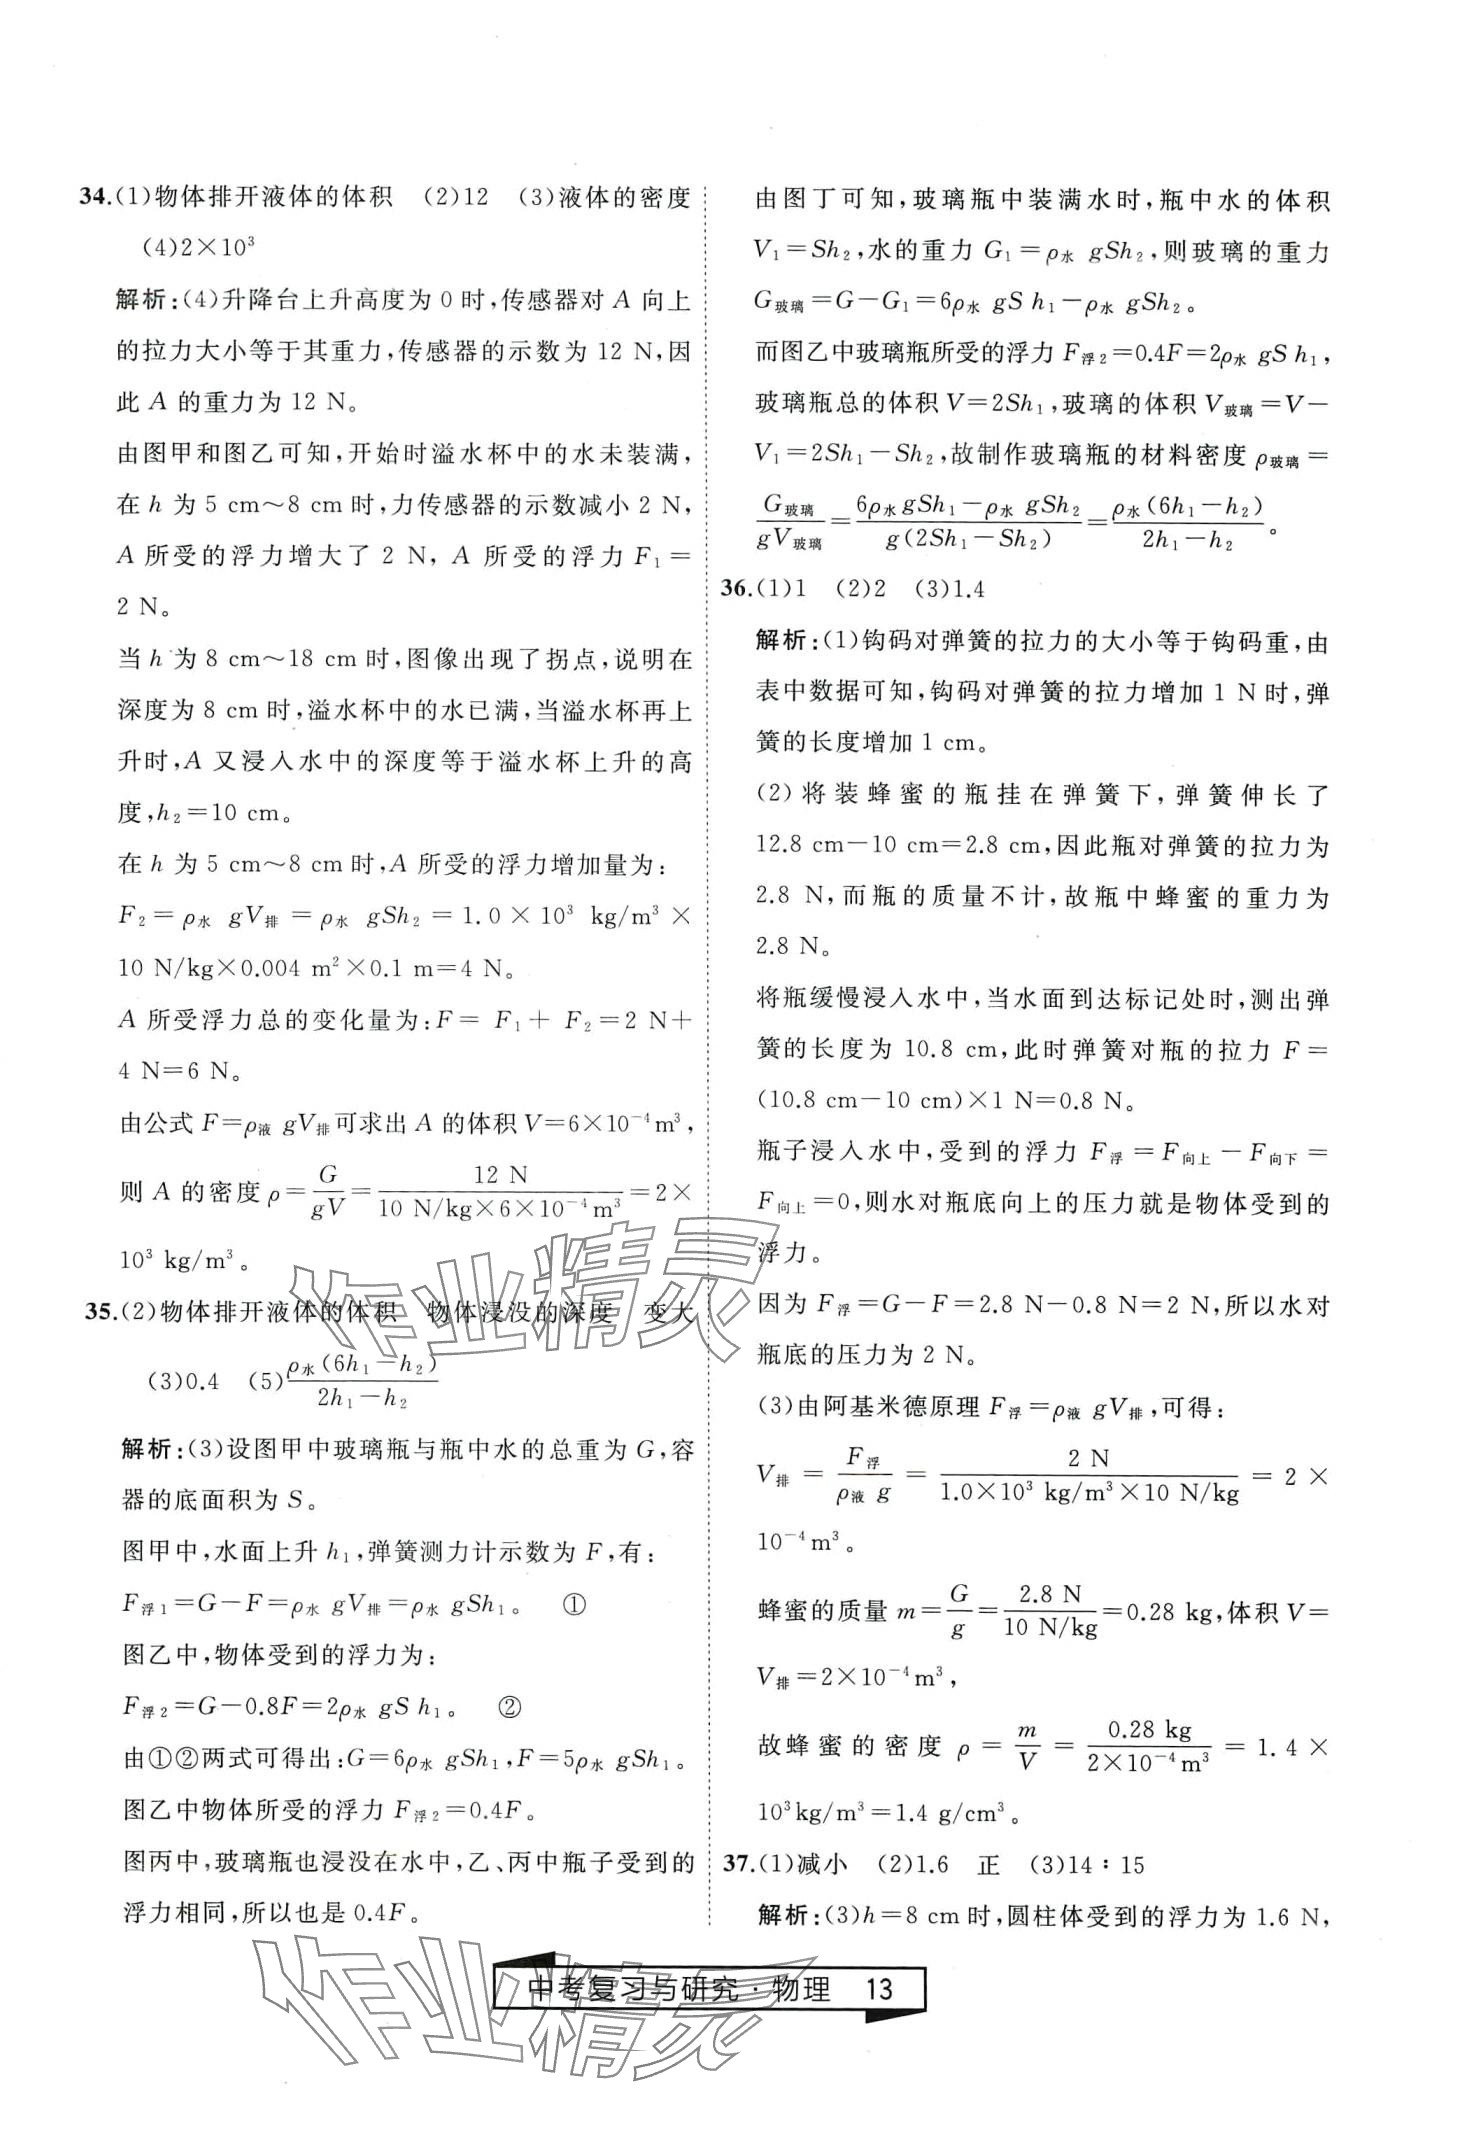 34.(1)物体排开液体的体积 (2)12 (3)液体的密度
(4)2×10³
解析:(4)升降台上升高度为 0 时,传感器对 A 向上
的拉力大小等于其重力,传感器的示数为 12 N,因
此 A 的重力为 12 N。
由图甲和图乙可知,开始时溢水杯中的水未装满,
在 h 为 5 cm～8 cm 时,力传感器的示数减小 2 N,
A 所受的浮力增大了 2 N, A 所受的浮力 F₁ =
2 N。
当 h 为 8 cm～18 cm 时,图像出现了拐点,说明在
深度为 8 cm 时,溢水杯中的水已满,当溢水杯再上
升时,A 又浸入水中的深度等于溢水杯上升的高
度,h₂=10 cm。
在 h 为 5 cm～8 cm 时,A 所受的浮力增加量为:
F₂ = ρ水 gV排 = ρ水 gSh₂ = 1.0 × 10³ kg/m³ ×
10 N/kg×0.004 m²×0.1 m=4 N。
A 所受浮力总的变化量为:F= F₁+ F₂=2 N+
4 N=6 N。
由公式 F=ρ液 gV排可求出 A 的体积 V=6×10⁻⁴m³,
则 A 的密度 ρ=G/gV=12 N/10 N/kg×6×10⁻⁴m³=2×
10³ kg/m³。
35.(2)物体排开液体的体积 物体浸没的深度 变大
(3)0.4 (5)ρ水(6h₁-h₂)/2h₁-h₂
解析:(3)设图甲中玻璃瓶与瓶中水的总重为 G,容
器的底面积为 S。
图甲中,水面上升 h₁,弹簧测力计示数为 F,有:
F浮1=G-F=ρ水 gV排=ρ水 gSh₁。 ①
图乙中,物体受到的浮力为:
F浮2=G-0.8F=2ρ水 gS h₁。 ②
由①②两式可得出:G=6ρ水 gSh₁,F=5ρ水 gSh₁。
图乙中物体所受的浮力 F浮2=0.4F。
图丙中,玻璃瓶也浸没在水中,乙、丙中瓶子受到的
浮力相同,所以也是 0.4F。
由图丁可知,玻璃瓶中装满水时,瓶中水的体积
V₁=Sh₂,水的重力 G₁=ρ水 gSh₂,则玻璃的重力
G玻璃=G-G₁=6ρ水 gS h₁-ρ水 gSh₂。
而图乙中玻璃瓶所受的浮力 F浮2=0.4F=2ρ水 gS h₁,
玻璃瓶总的体积 V=2Sh₁,玻璃的体积 V玻璃=V-
V₁=2Sh₁-Sh₂,故制作玻璃瓶的材料密度 ρ玻璃=
G玻璃/gV玻璃=6ρ水gSh₁-ρ水 gSh₂/g(2Sh₁-Sh₂)=ρ水(6h₁-h₂)/2h₁-h₂。
36.(1)1 (2)2 (3)1.4
解析:(1)钩码对弹簧的拉力的大小等于钩码重,由
表中数据可知,钩码对弹簧的拉力增加 1 N 时,弹
簧的长度增加 1 cm。
(2)将装蜂蜜的瓶挂在弹簧下,弹簧伸长了
12.8 cm-10 cm=2.8 cm,因此瓶对弹簧的拉力为
2.8 N,而瓶的质量不计,故瓶中蜂蜜的重力为
2.8 N。
将瓶缓慢浸入水中,当水面到达标记处时,测出弹
簧的长度为 10.8 cm,此时弹簧对瓶的拉力 F=
(10.8 cm-10 cm)×1 N=0.8 N。
瓶子浸入水中,受到的浮力 F浮=F向上-F向下=
F向上=0,则水对瓶底向上的压力就是物体受到的
浮力。
因为 F浮=G-F=2.8 N-0.8 N=2 N,所以水对
瓶底的压力为 2 N。
(3)由阿基米德原理 F浮=ρ液 gV排,可得:
V排 = F浮/ρ液 g = 2 N/1.0×10³ kg/m³×10 N/kg = 2 ×
10⁻⁴m³。
蜂蜜的质量 m=G/g=2.8 N/10 N/kg=0.28 kg,体积 V=
V排=2×10⁻⁴m³,
故蜂蜜的密度 ρ = m/V = 0.28 kg/2×10⁻⁴m³ = 1.4 ×
10³kg/m³=1.4 g/cm³。
37.(1)减小 (2)1.6 正 (3)14∶15
解析:(3)h=8 cm时,圆柱体受到的浮力为 1.6 N,
作业精灵
中考复习与研究·物理 13
作业精灵